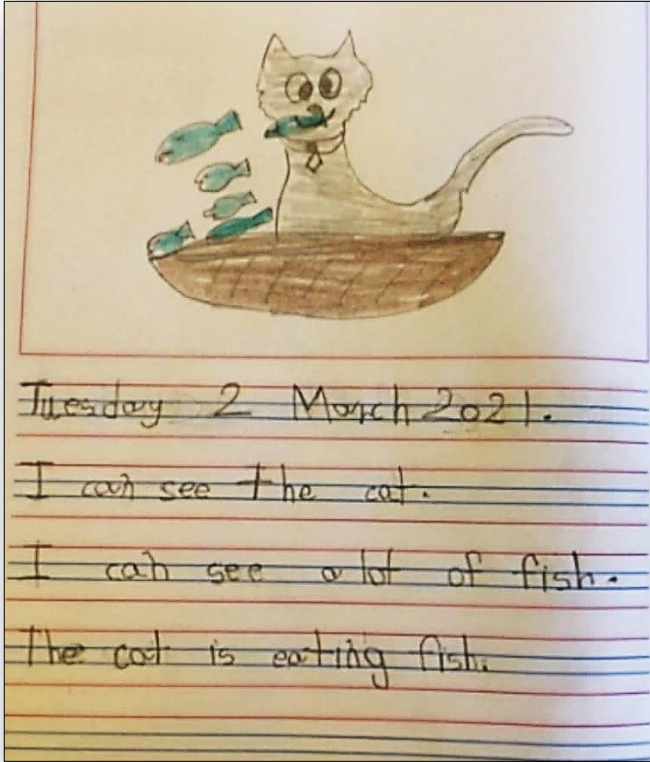 Tuesday 2 March 2021.
I can see the cat.
I can see a lot of fish.
The cat is eating fish.